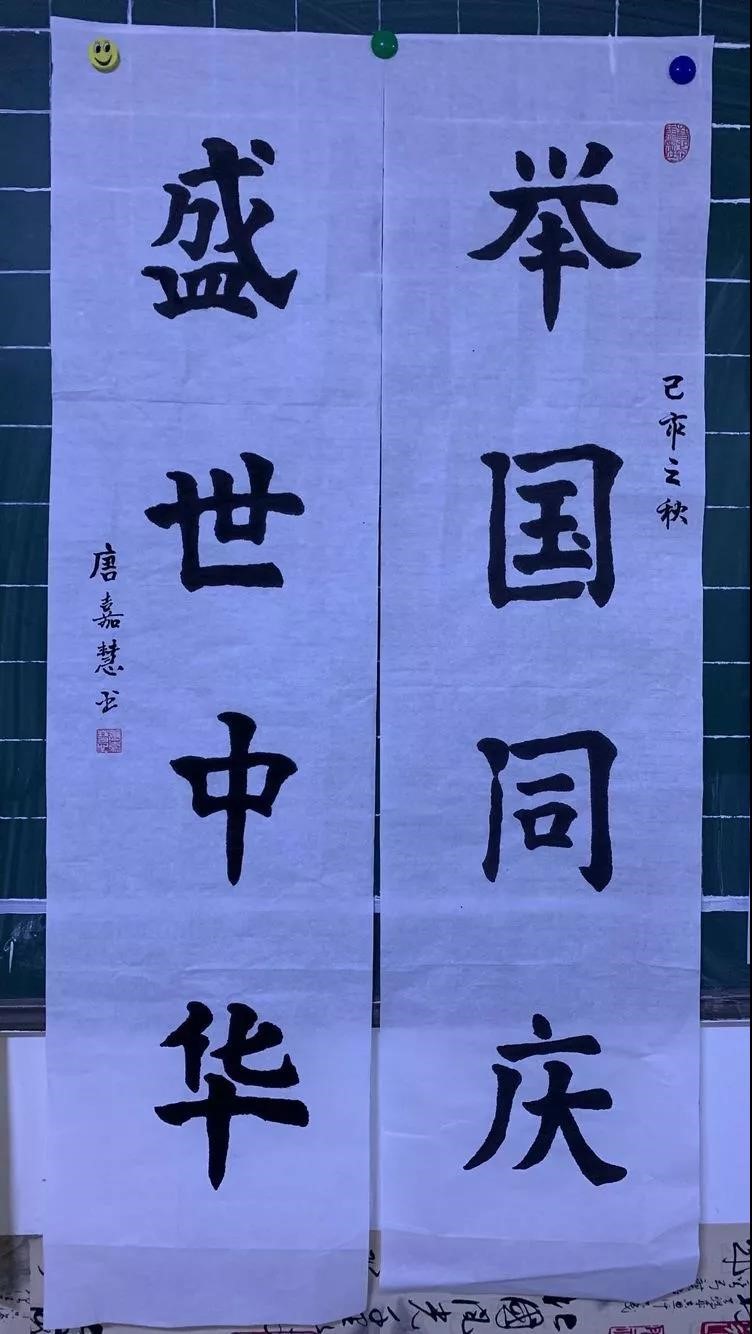 举国同庆
己亥之秋
盛世中华
唐嘉慧书